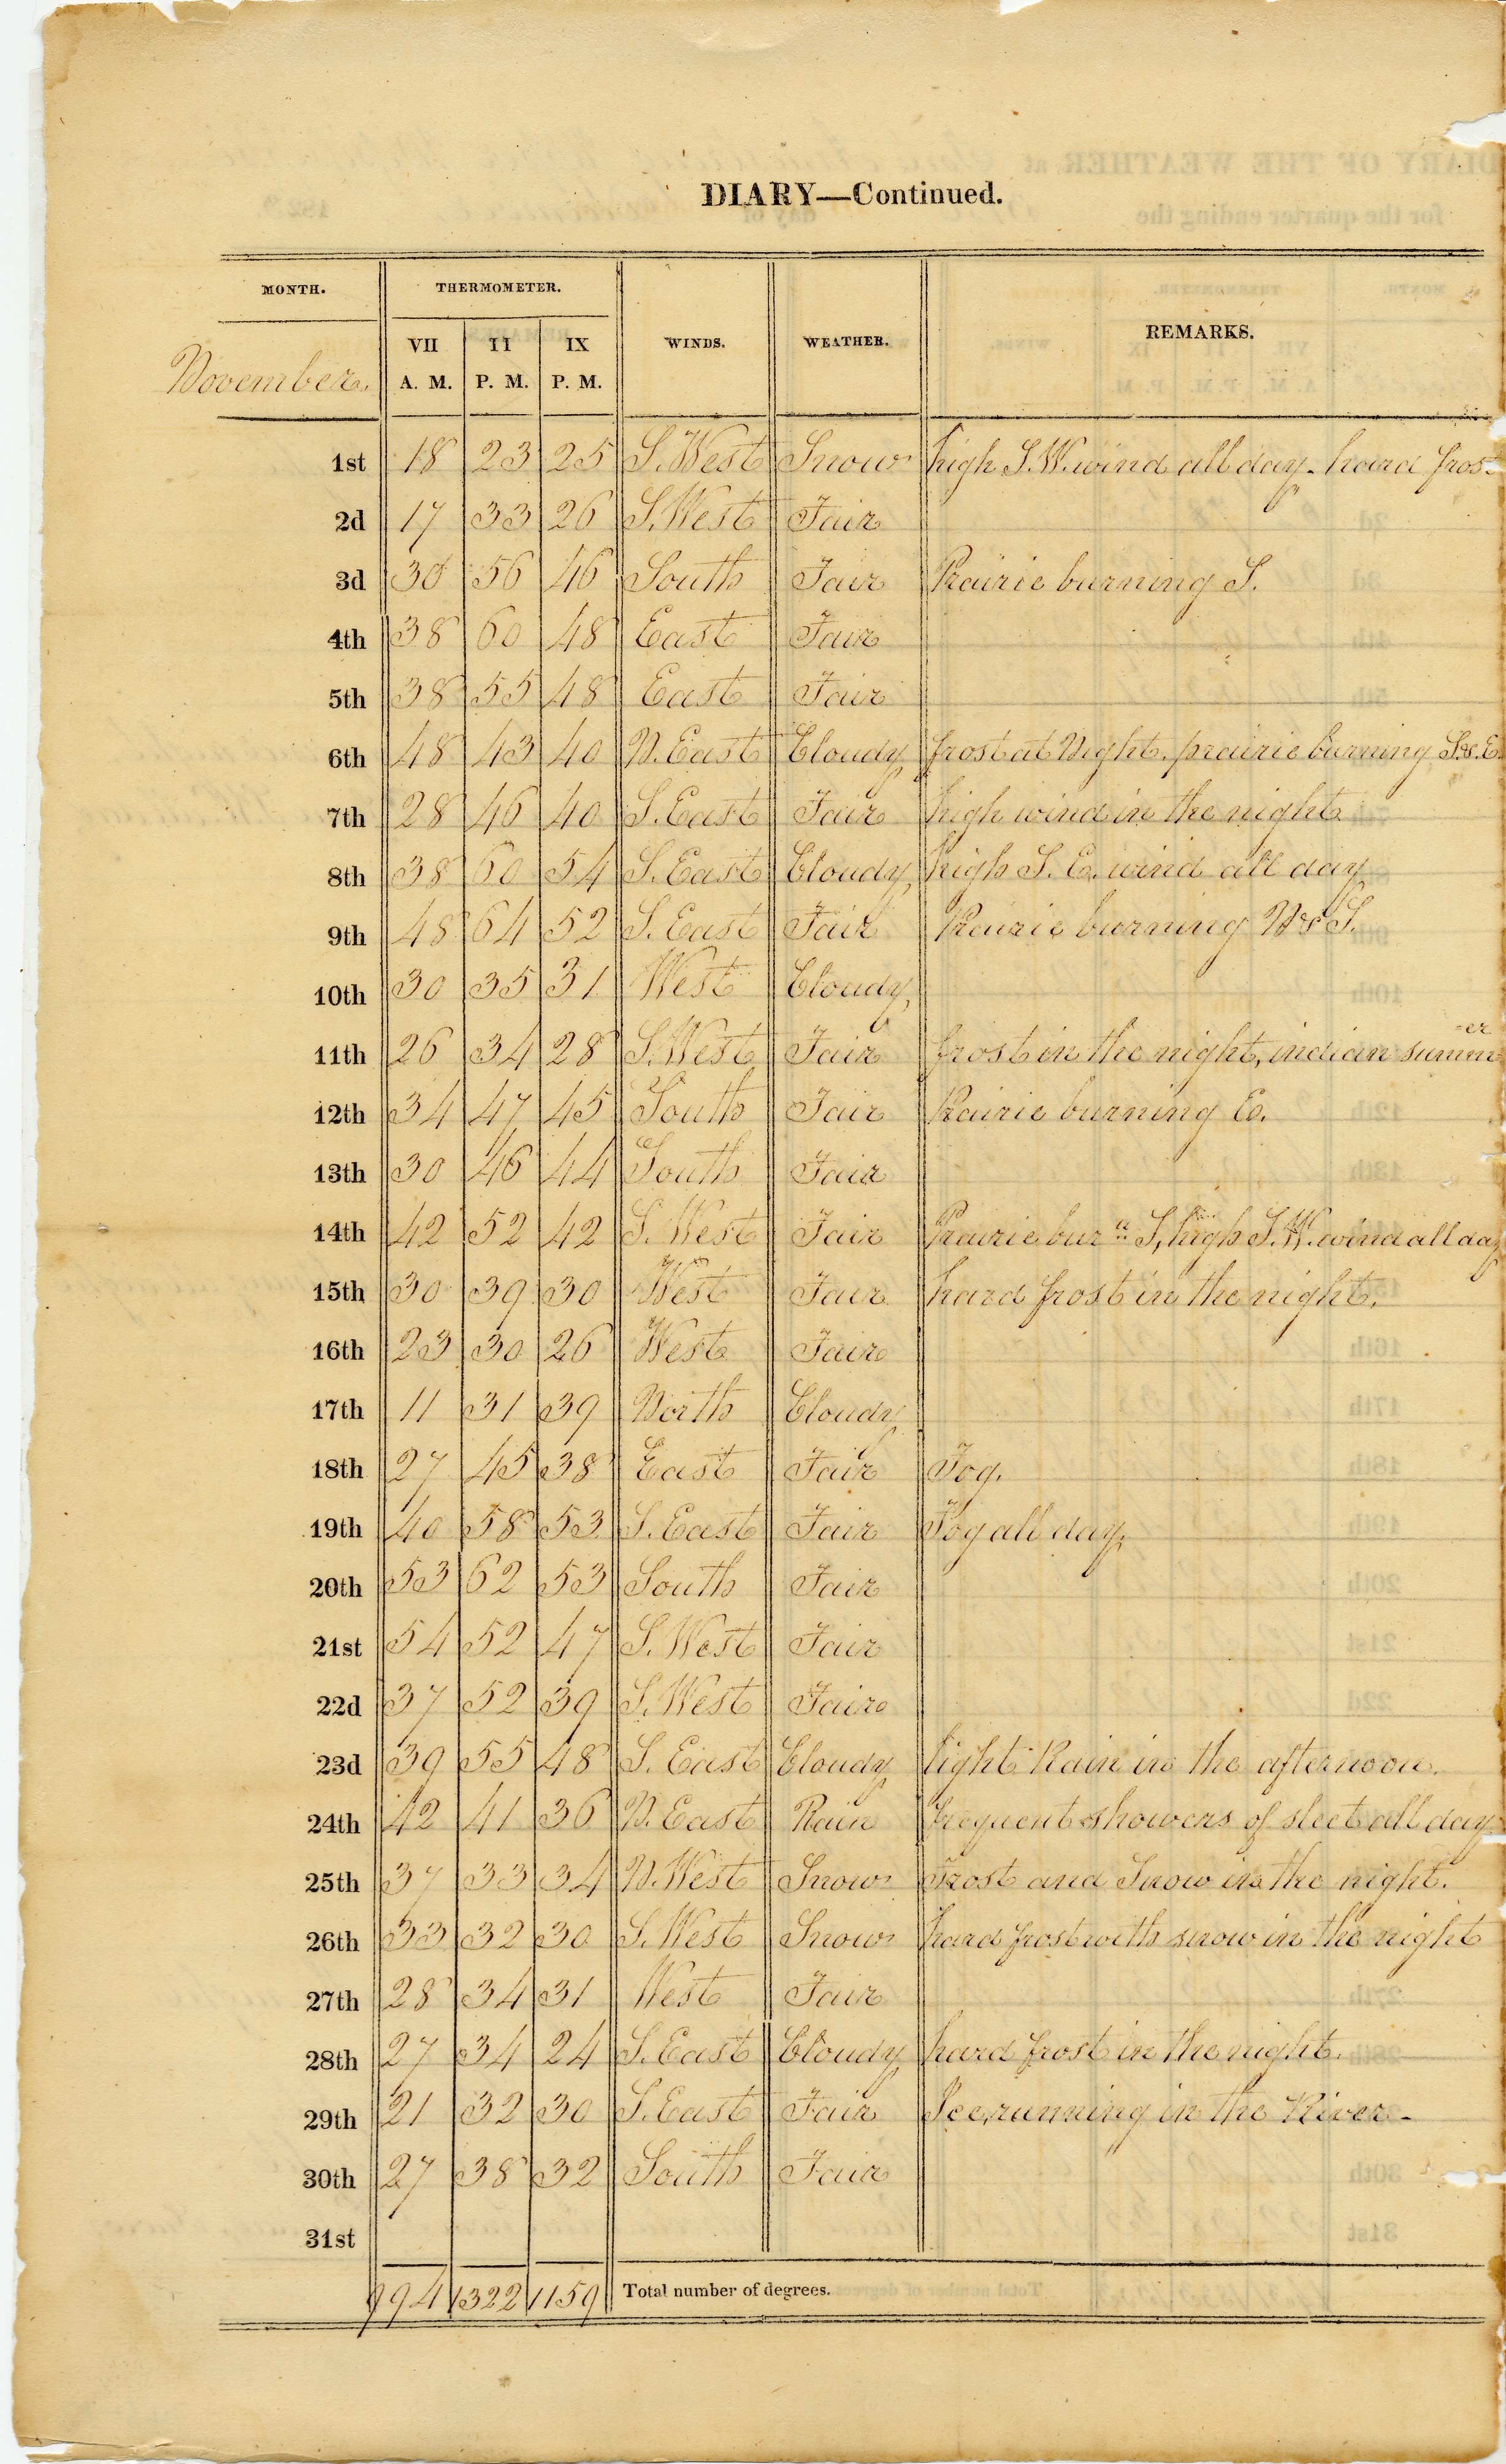 DIARY—Continued.
MONTH. THERMOMETER. WINDS. WEATHER. REMARKS.
November. VII A. M. II P. M. IX P. M.
1st 18 23 25 S. West Snow high S. W. wind all day - hard frost
2d 17 33 26 S. West Fair
3d 30 56 46 South Fair Prairie burning S.
4th 38 60 48 East Fair
5th 38 55 48 East Fair
6th 48 43 40 N. East Cloudy frost at Night. prairie burning S. & E.
7th 28 46 40 S. East Fair high wind in the night
8th 38 60 54 S. East Cloudy, high S. E. wind all day
9th 48 64 52 S. East Fair Prairie burning N & S.
10th 30 35 31 West Cloudy,
11th 26 34 28 S. West Fair frost in the night, indian summ-er
12th 34 47 45 South Fair Prairie burning E.
13th 30 46 44 South Fair
14th 42 52 42 S. West Fair Prairie bur" S, high S. W. wind all day
15th 30 39 30 West Fair hard frost in the night.
16th 23 30 26 West Fair
17th 11 31 39 North Cloudy
18th 27 45 38 East Fair Fog.
19th 40 58 53 S. East Fair Fog all day,
20th 53 62 53 South Fair
21st 54 52 47 S. West Fair
22d 37 52 39 S. West Fair
23d 39 55 48 S. East Cloudy light Rain in the afternoon.
24th 42 41 36 N. East Rain frequent showers of sleet all day.
25th 37 33 34 N. West Snow Frost and Snow in the night.
26th 33 32 30 S. West Snow hard frost with snow in the night
27th 28 34 31 West Fair
28th 27 34 24 S. East Cloudy hard frost in the night.
29th 21 32 30 S. East Fair Ice running in the River -
30th 27 38 32 South Fair
31st
994 1322 1159 Total number of degrees.